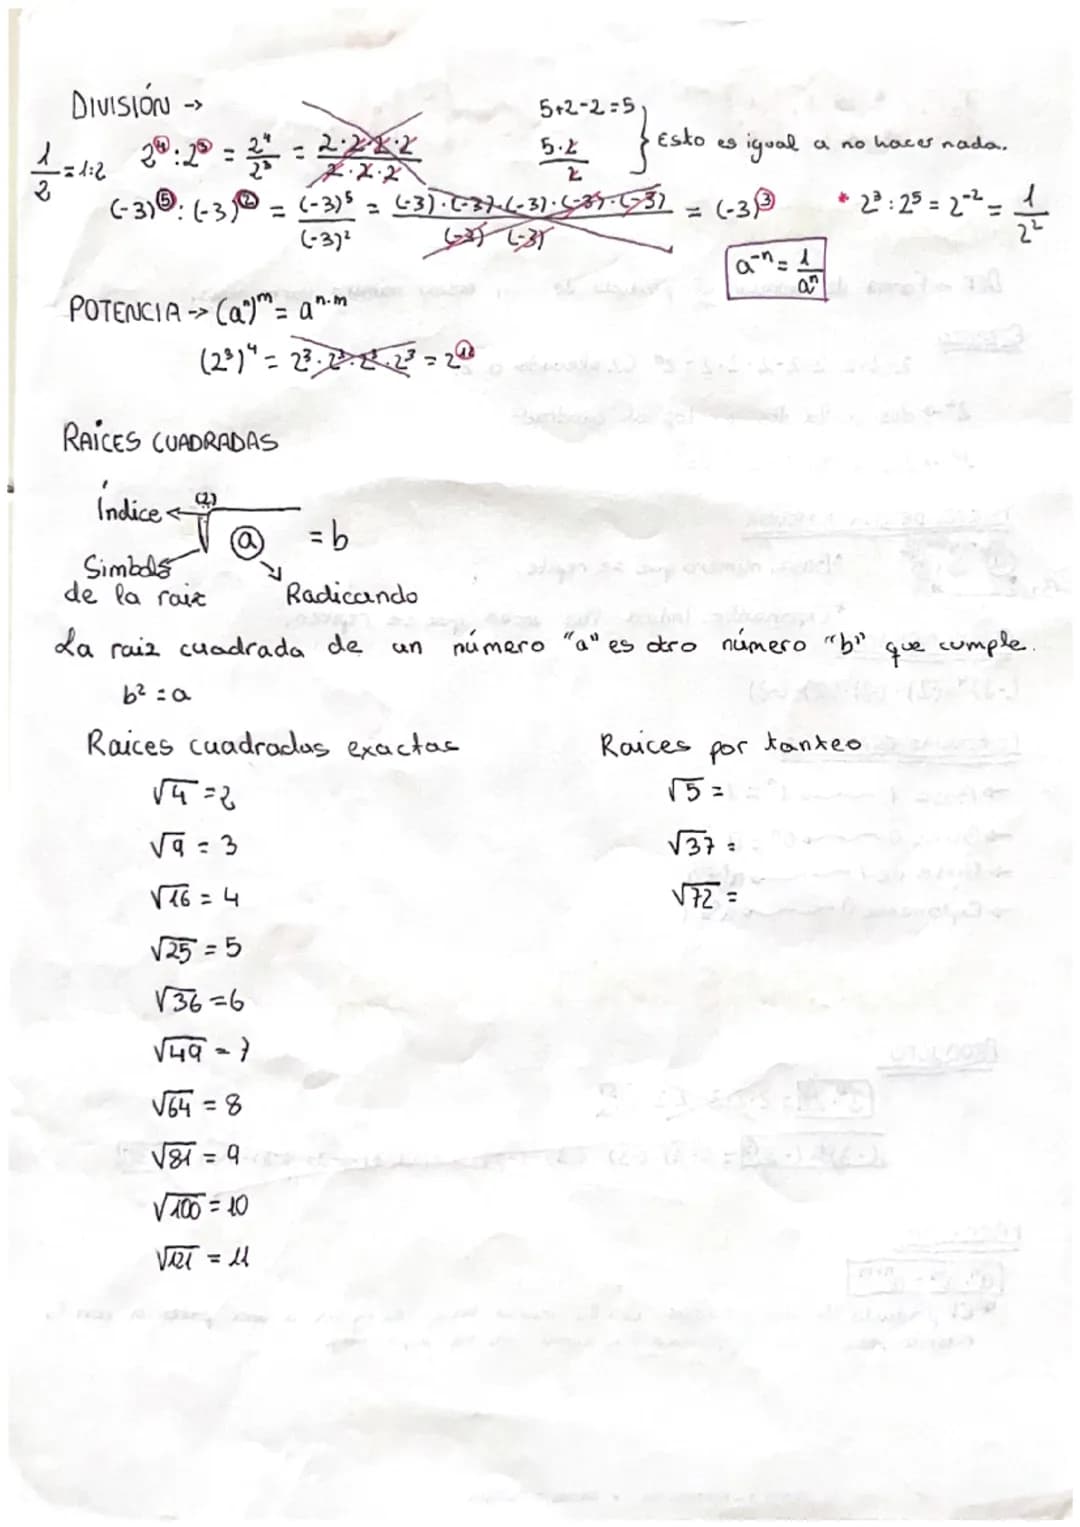 DIVISIÓN →
5+2-2=5
5·2/2
} Esto es igual a no hacer nada.
1/2 = 1:2
2⁴:2³ = 2⁴/2³ = 2·2·2·2/2·2·2
(-3)⁵:(-3)² = (-3)⁵/(-3)² = (-3)·(-3)·(-3)·(-3)·(-3)/(-3)·(-3) = (-3)³
* 2³:2⁵ = 2⁻² = 1/2²
a⁻ⁿ = 1/aⁿ
POTENCIA → (aⁿ)ᵐ = aⁿ·ᵐ
(2³)⁴ = 2³·2³·2³·2³ = 2¹²
RAÍCES CUADRADAS
Índice ← (2)
√ a = b
Simbolo
de la raiz
Radicando
La raiz cuadrada de un número "a" es otro número "b" que cumple.
b² = a
Raices cuadradas exactas
√4 = 2
√9 = 3
√16 = 4
√25 = 5
√36 = 6
√49 = 7
√64 = 8
√81 = 9
√100 = 10
√121 = 11
Raices por tanteo
√5 =
√37 =
√72 =